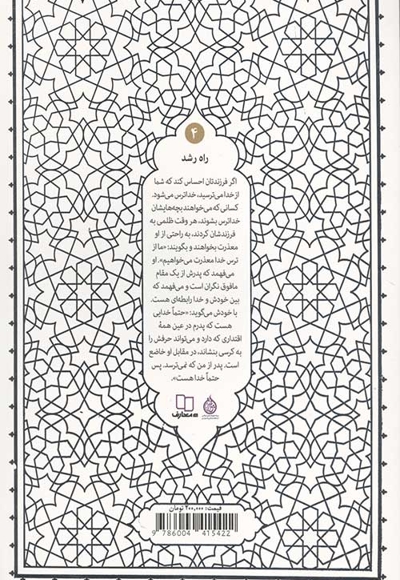 ۴
راه رشد
اگر فرزندتان احساس کند که شما
از خدا می‌ترسید، خداترس می‌شود.
کسانی که می‌خواهند بچه‌هایشان
خداترس بشوند، هر وقت ظلمی به
فرزندشان کردند، به راحتی از او
معذرت بخواهند و بگویند: «ما از
ترس خدا معذرت می‌خواهیم». او
می‌فهمد که پدرش از یک مقام
مافوق نگران است و می‌فهمد که
بین خودش و خدا رابطه‌ای هست.
با خودش می‌گوید: «حتماً خدایی
هست که پدرم در عین همهٔ
اقتداری که دارد و می‌تواند حرفش را
به کرسی بنشاند، در مقابل او خاضع
است. پدر از من که نمی‌ترسد. پس
حتماً خدا هست».
معارف
قیمت: ۲۰۰,۰۰۰ تومان
9 786004 415422